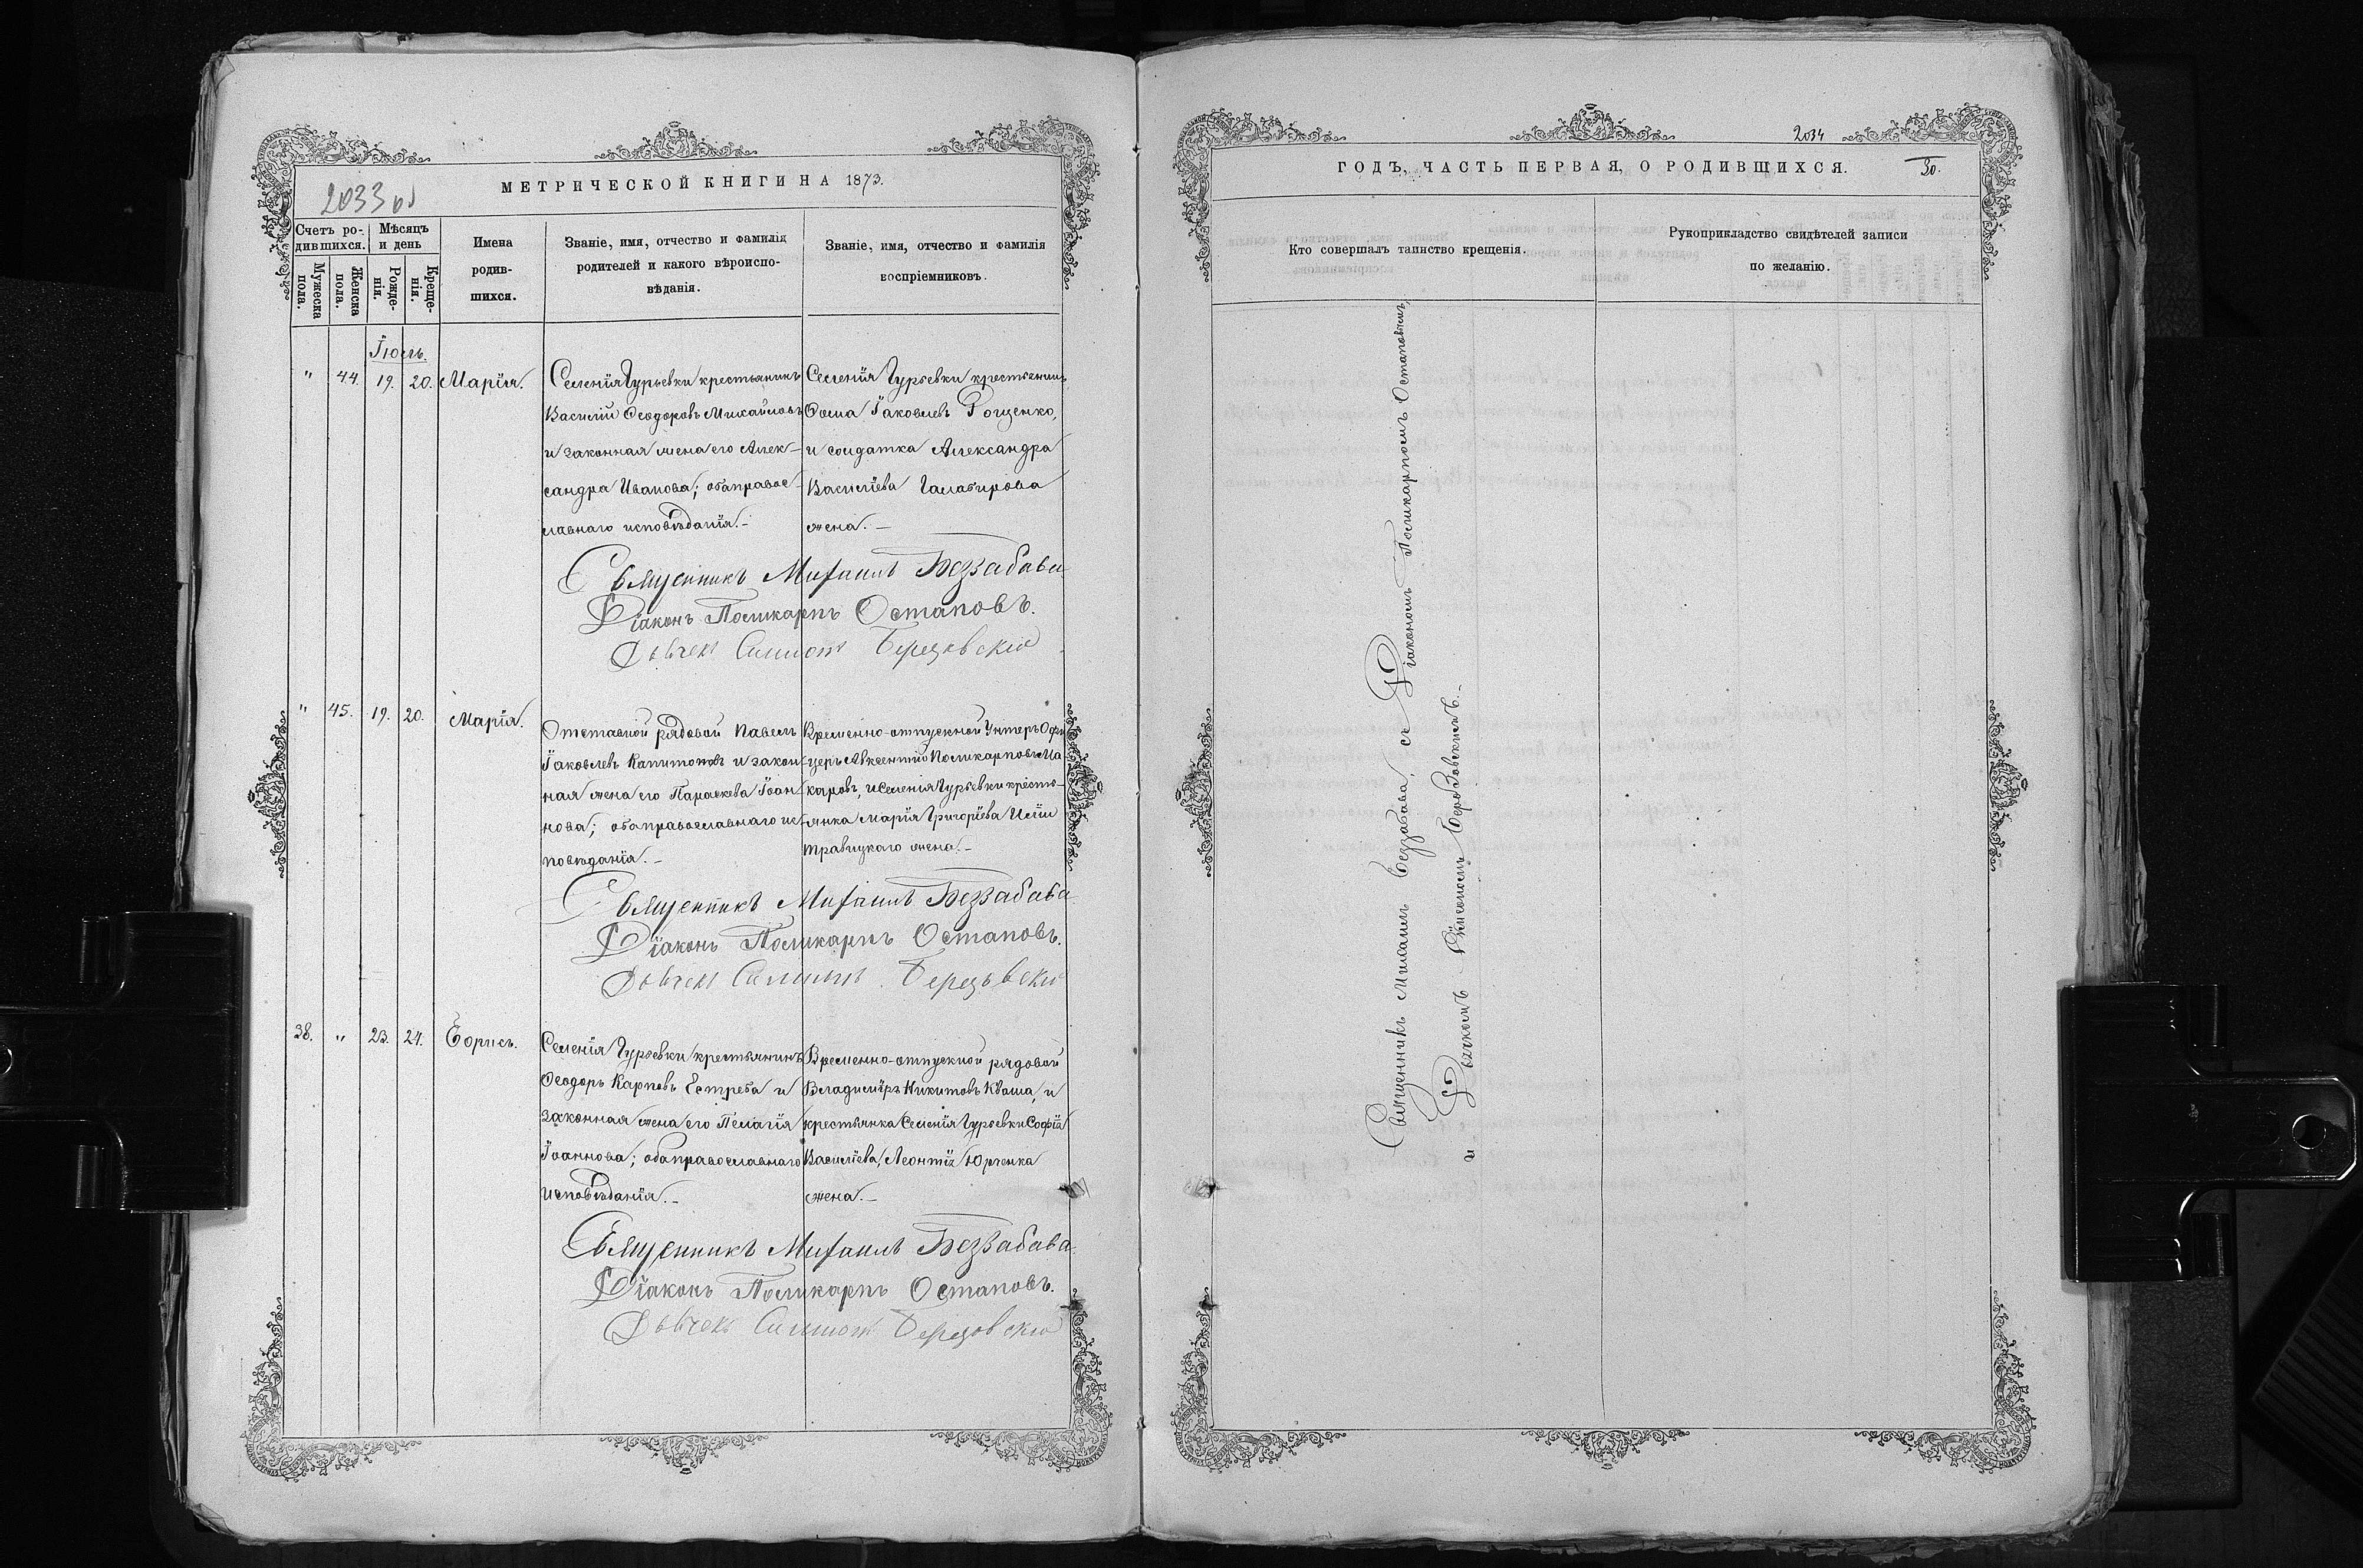 2033 об
МЕТРИЧЕСКОЙ КНИГИ НА 1873.
Счетъ ро-
дившихся.
Мѣсяцъ
и день
Мужеска
пола.
Женска
пола.
Рожде-
нія.
Креще-
нія.
Имена
родив-
шихся.
Званіе, имя, отчество и фамилія
родителей и какого вѣроиспо-
вѣданія.
Званіе, имя, отчество и фамилія
воспріемниковъ.
Іюль.
" 44. 19. 20. Марія.
Селенія Гурьевки крестьянинъ
Василій Ѳеодоровъ Михайловъ
и законная жена его Алек-
сандра Иванова; оба православ-
лавнаго исповѣданія.-
Селенія Гурьевки крестьянинъ
Ѳома Іаковлевъ Рощенко,
и солдатка Александра
Василіева
жена.-
Священникъ Михаилъ Беззабава
Діаконъ Поликарпъ Остаповъ.
Дьячекъ Симеонъ Березовскій
" 45. 19. 20. Марія.
Отставной рядовой Павелъ
Іаковлевъ Капитоновъ и закон-
ная жена его Параскева Іоан-
нова; оба православнаго ис-
повѣданія.-
Временно-отпускной Унтеръ Офи
церъ Авксентій Поликарповъ Ма
каровъ, и Селенія Гурьевки кресть-
янка Марія Григоріева Иліи
Травицкаго жена.-
Священникъ Михаилъ Беззабава
Діаконъ Поликарпъ Остаповъ.
Дьячекъ Симеонъ Березовскій
38. " 23. 24. Борисъ.
Селенія Гурьевки крестьянинъ
Ѳеодоръ Карповъ Естреба и
законная жена его Пелагія
Іоаннова; оба православнаго
исповѣданія.-
Временно-отпускной рядовой
Владиміръ Никитовъ Кваша, и
крестьянка Селенія Гурьевки Софія
Василіева, Леонтія Юрченка
жена.-
Священникъ Михаилъ Беззабава
Діаконъ Поликарпъ Остаповъ.
Дьячекъ Симеонъ Березовскій
2034
30.
ГОДЪ, ЧАСТЬ ПЕРВАЯ, О РОДИВШИХСЯ.
Кто совершалъ таинство крещенія.
Рукоприкладство свидѣтелей записи
по желанію.
Священникъ Михаилъ Беззабава, съ Діакономъ Поликарпомъ Остаповымъ,
и Дьячкомъ Симеономъ Березовскимъ.-